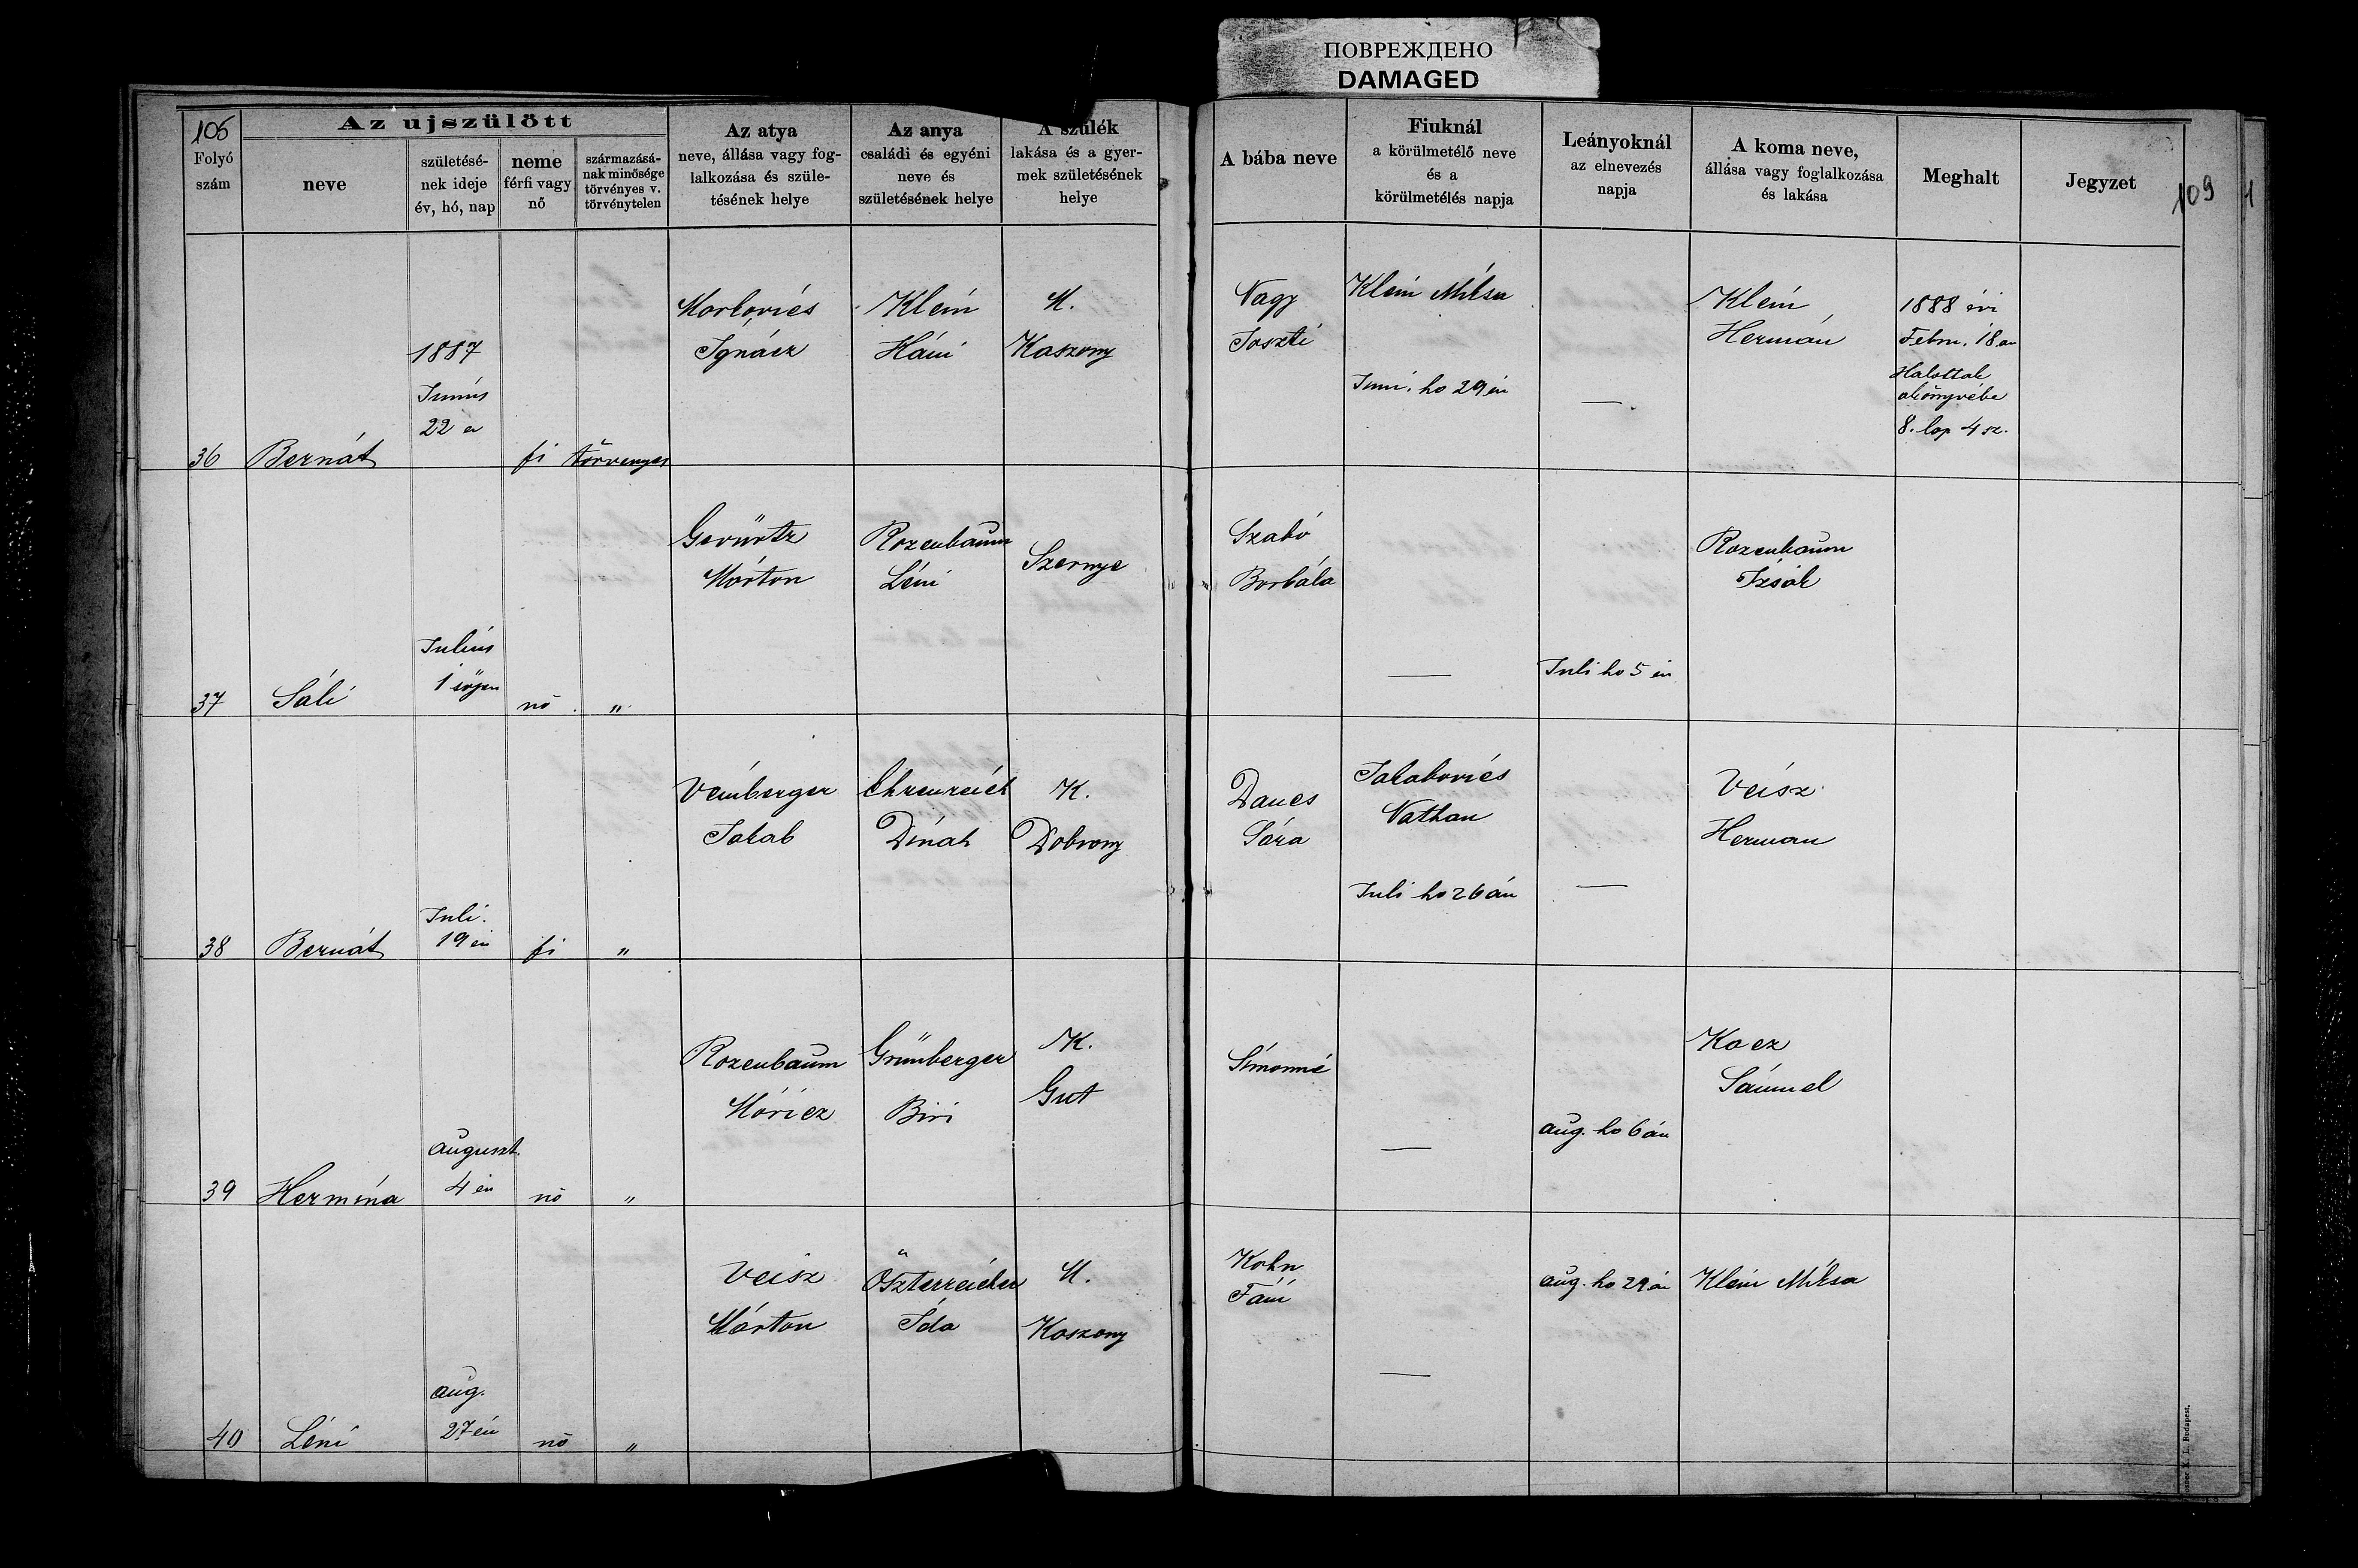 ПОВРЕЖДЕНО
DAMAGED
106
Az ujszülött
Folyó
szám
neve
születésé-
nek ideje
év, hó, nap
neme
férfi vagy
nő
származásá-
nak minősége
törvényes v.
törvénytelen
Az atya
neve, állása vagy fog-
lalkozása és szüle-
tésének helye
Az anya
családi és egyéni
neve és
születésének helye
A szülék
lakása és a gyer-
mek születésének
helye
A bába neve
Fiuknál
a körülmetélő neve
és a
körülmetélés napja
Leányoknál
az elnevezés
napja
A koma neve,
állása vagy foglalkozása
és lakása
Meghalt
Jegyzet
109
1
36
Bernát
1887
Junius
22 én
fi
törvenyes
Markovics
Ignácz
Klein
Háni
M.
Kaszony
Nagy
Klein Miksa
Juni. ho 29 én
—
Klein
Hermán
1888 évi
Febru. 18 án
Halottak
8. lap 4 sz.
37
Sáli
Julius
1
nö
"
Gevürtz
Márton
Rozenbaum
Léni
Szernye
Szabó
Borbála
—
Juli ho 5 én
Rozenbaum
Izsák
38
Bernát
Juli.
19 én
fi
"
Veinberger
Jakab
Ehrenreich
Dinah
K.
Dobrony
Dancs
Sára
Jakabovics
Nathan
Juli ho 26 án
—
Veisz
Herman
39
Hermina
auguszt.
4 én
nö
"
Rozenbaum
Móricz
Grünberger
Biri
K.
Gut
Simonné
—
aug. ho 6 án
Kacz
Sámuel
40
Léni
aug.
27 én
nö
"
Veisz
Márton
Öszterreicher
Ida
M.
Kaszony
Kohn
Fáni
—
aug. ho 29 én
Klein Miksa
K. L. Budapest.